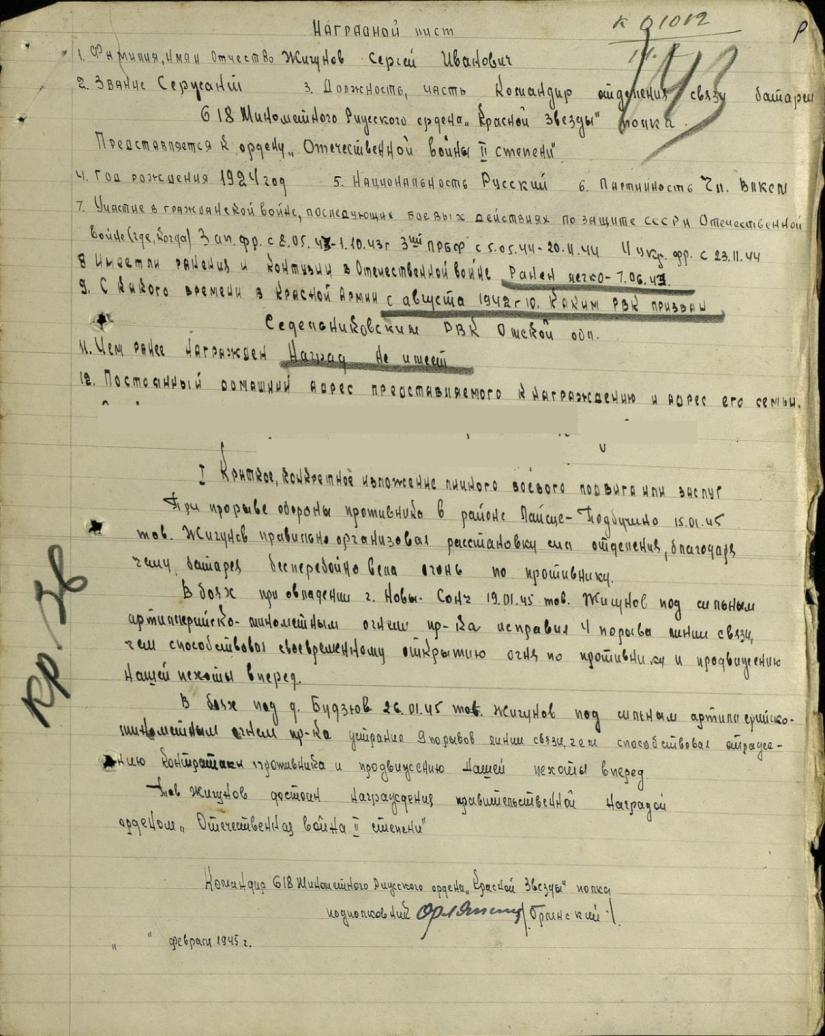 Наградной лист
к 01012
1. Фамилия, имя отчество Жигунов Сергей Иванович
2. Звание Сержант 3. Должность, часть Командир отделения связи батареи
618 Минометного ордена „Красной Звезды" полка.
Представляется к ордену „Отечественной войны II степени".
4. Год рождения 1924 год 5. Национальность Русский 6. Партийность Чл. ВЛКСМ
7. Участие в гражданской войне, последующих боевых действиях по защите СССР и Отечественной
войне (где, когда) Зап. фр. с 2.05.43-1.10.43г 3ий ПРБФ с 5.05.44-20.11.44 4 Укр. фр. с 23.11.44
8 Имеет ли ранения и контузии в Отечественной войне Ранен легко-7.06.43
9. С какого времени в Красной Армии с августа 1942г 10. Каким РВК призван
Седельниковским РВК Омской обл.
11. Чем ранее награжден Наград не имеет
12. Постоянный домашний адрес представляемого к награждению и адрес его семьи.
I Краткое, конкретное изложение личного боевого подвига или заслуг
При прорыве обороны противника в районе 15.01.45
тов. Жигунов правильно организовал расстановку сил отделения, благодаря
чему, батарея бесперебойно вела огонь по противнику.
В боях при овладении г. Новы-Сонч 19.01.45 тов. Жигунов под сильным
артиллерийско-минометным огнем пр-ка исправил 4 порыва линии связи,
чем способствовал своевременному открытию огня по противнику и продвижению
нашей пехоты вперед.
В боях под д. Будзюв 26.01.45 тов. Жигунов под сильным артиллерийско-
минометным огнем пр-ка устранил 9 порывов линии связи, чем способствовал отраже-
нию контратаки противника и продвижению нашей пехоты вперед.
Тов Жигунов достоин награждения правительственной наградой
орденом „Отечественная война II степени"
Командир 618 Минометного ордена „Красной Звезды" полка
подполковник /Брынский/
„ " февраля 1945 г.
Кр. Зв